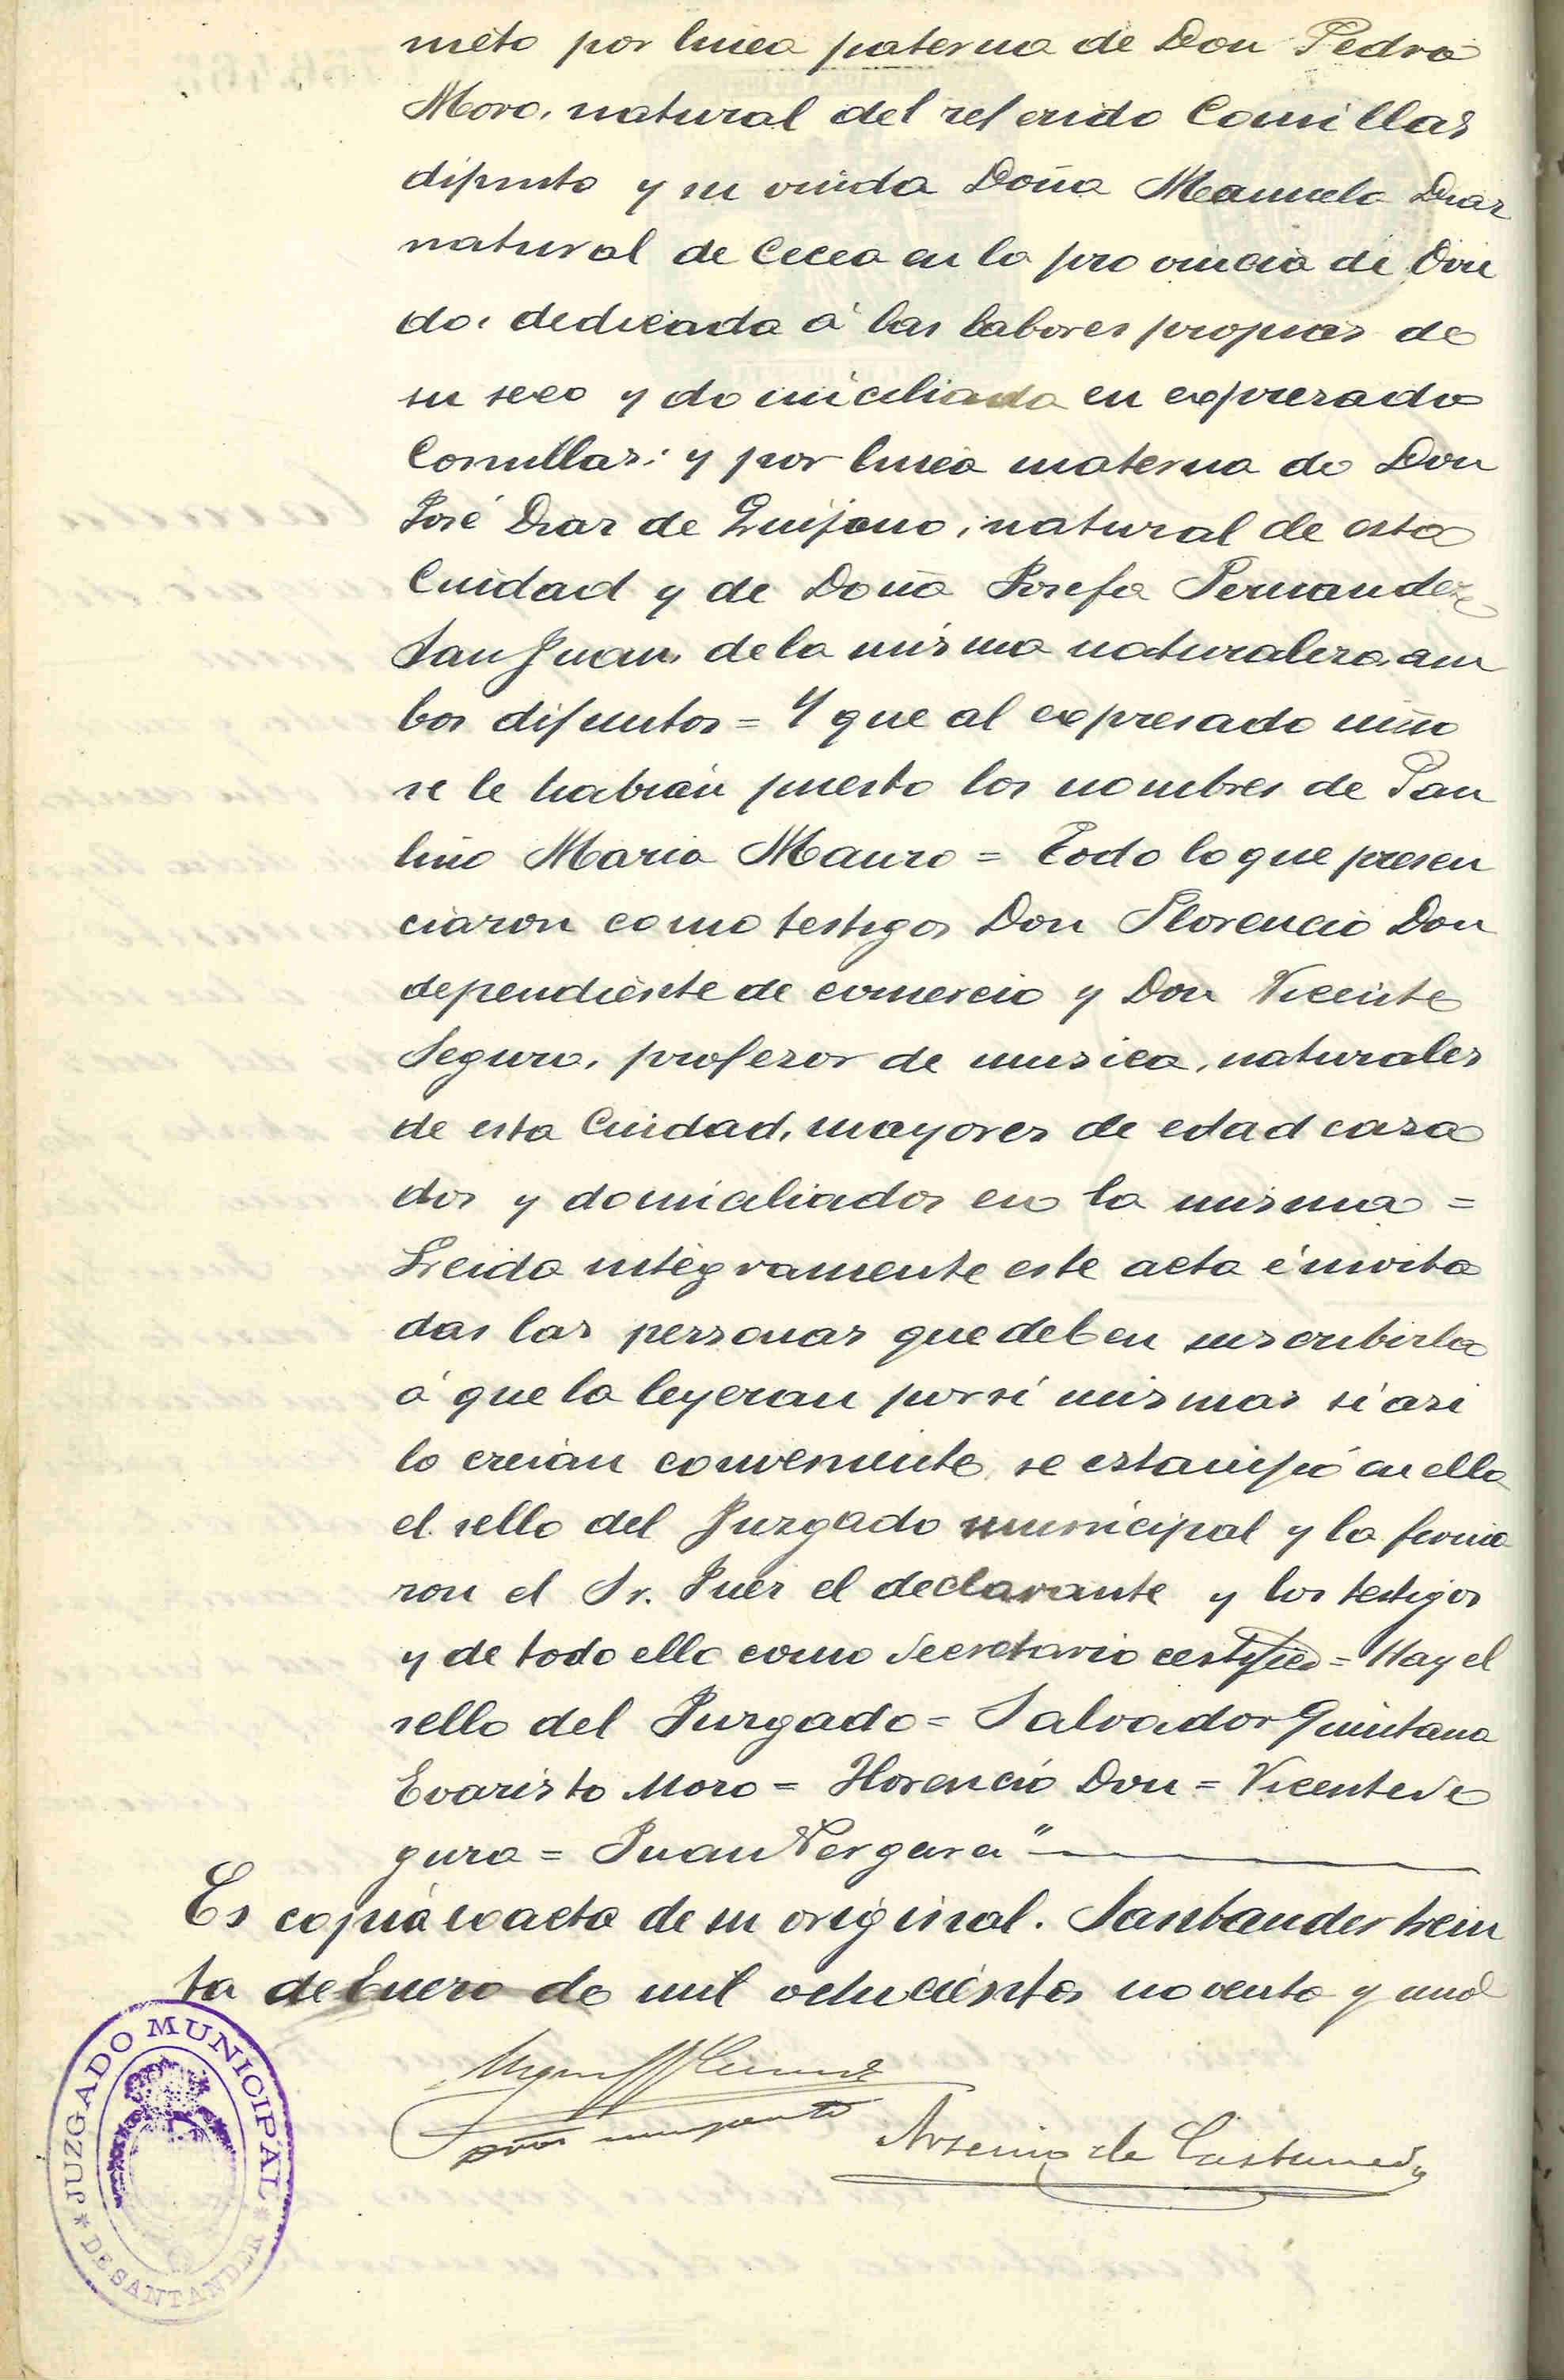 nieto por linea paterna de Don Pedro
Moro, natural del referido Comillas
difunto y su viuda Doña Manuela Diaz
natural de Cecea en la provincia de Ovie
do, dedicada á las labores propias de
su sexo y domiciliada en expresado
Comillas; y por linea materna de Don
José Diaz de Quijano, natural de esta
Ciudad y de Doña Josefa Fernandez
San Juan, de la misma naturaleza, am
bos difuntos = Y que al expresado niño
se le habián puesto los nombres de Pau
lino Maria Mauro = Todo lo que presen
ciaron como testigos Don Florencio Don
dependiente de comercio y Don Vicente
Segura, profesor de musica, naturales
de esta Ciudad, mayores de edad casa
dos y domiciliados en la misma =
Leida integramente este acta é invita
das las personas que deben suscribirla
á que la leyeran por sí mismas si asi
lo creián conveniente, se estampó en ella
el sello del Juzgado municipal y la firma
ron el Sr. Juez el declarante y los testigos
y de todo ello como Secretario certifico = Hay el
sello del Juzgado = Salvador Quintana
Evaristo Moro = Florencio Don = Vicente Se
gura = Juan Vergara"
Es copia exacta de su original. Santander trein
ta de Enero de mil ochocientos noventa y uno
Arsenio de Castanedo
JUZGADO MUNICIPAL
* DE SANTANDER *